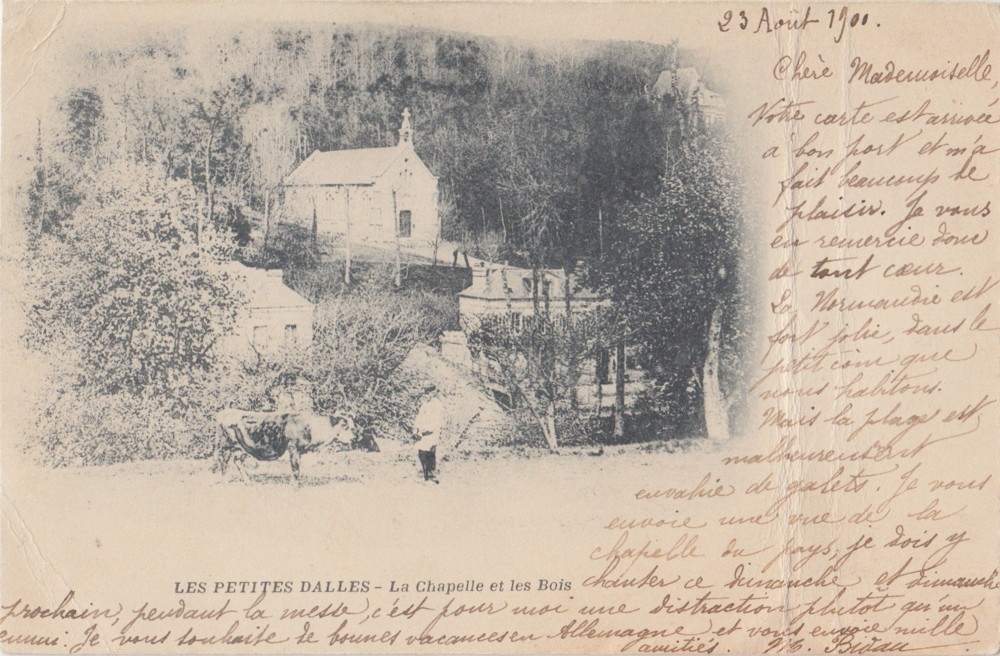 23 Août 1901.
Chère Mademoiselle,
Votre carte est arrivée
a bon port et m'a
fait beaucoup de
plaisir. Je vous
en remercie donc
de tout cœur.
La Normandie est
fort jolie, dans le
petit coin que
nous habitons.
Mais la plage est
malheureusent
envahie de galets. Je vous
envoie une vue de la
chapelle du pays, je dois y
LES PETITES DALLES - La Chapelle et les Bois
chanter ce dimanche et dimanche
prochain, pendant la messe, c'est pour moi une distraction plutôt qu'un
ennui. Je vous souhaite de bonnes vacances en Allemagne et vous envoie mille
amitiés.